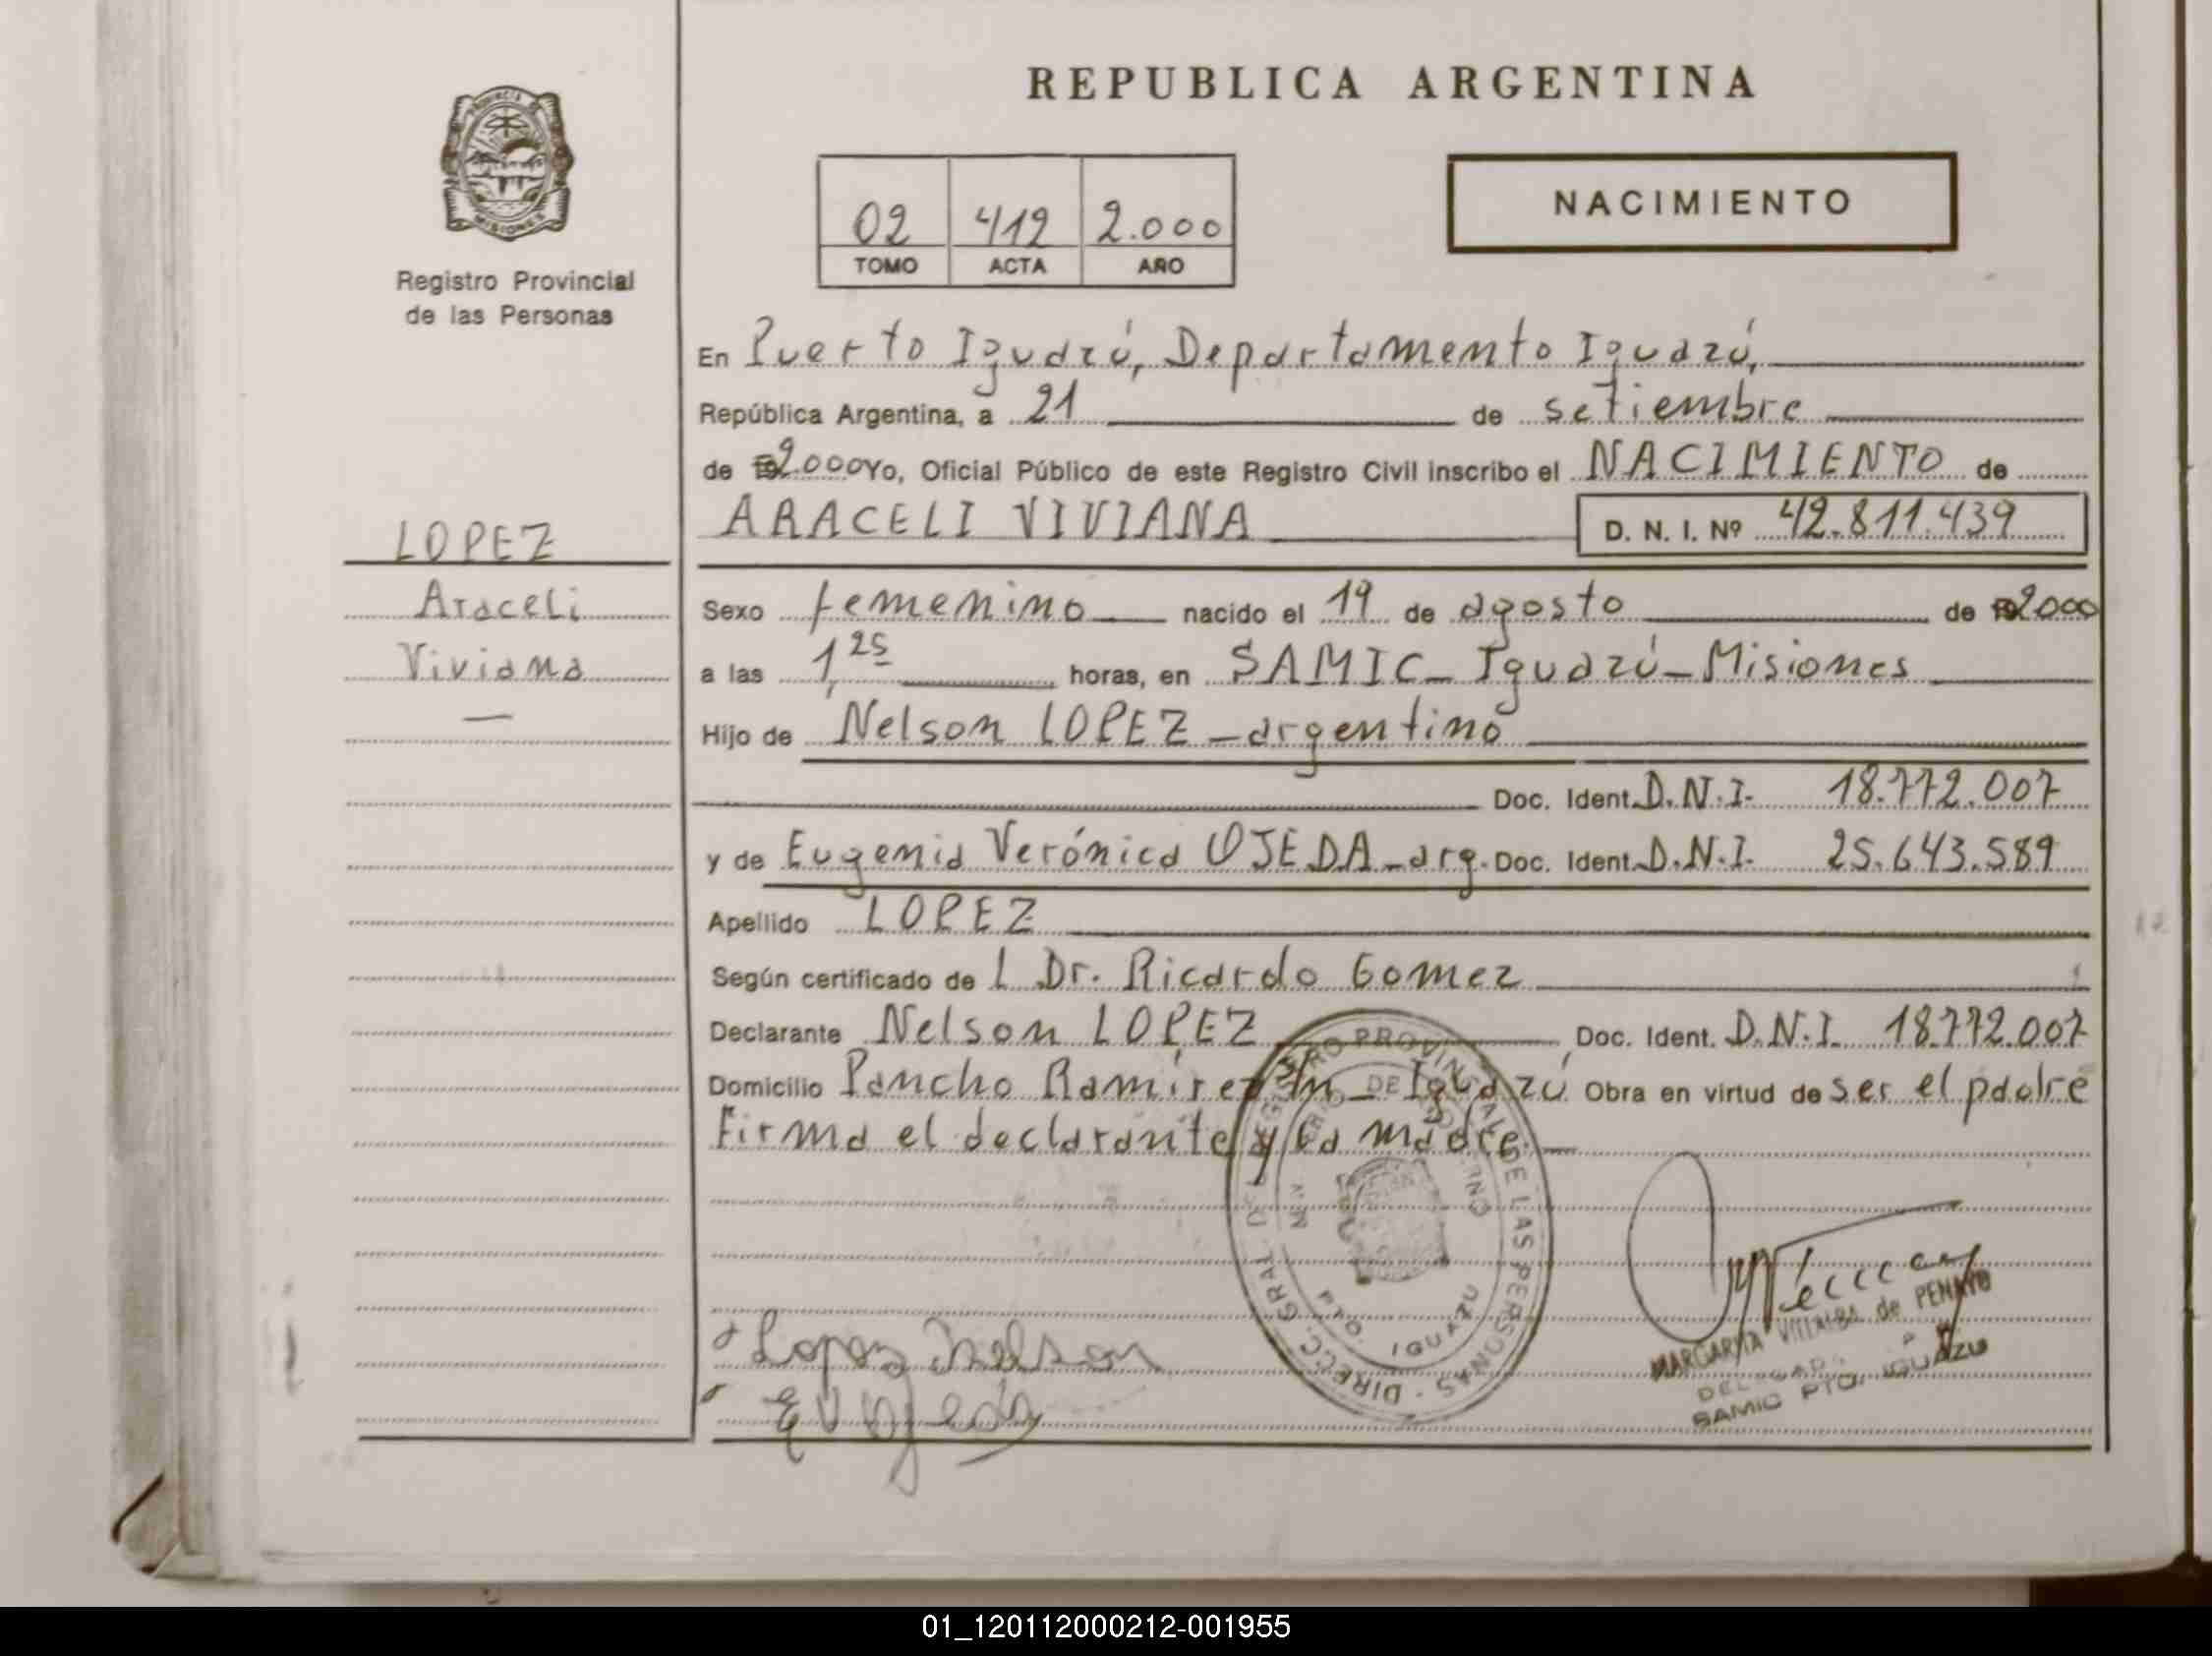 REPUBLICA ARGENTINA
PROVINCIA DE
MISIONES
Registro Provincial
de las Personas
02 412 2.000
TOMO ACTA AÑO
NACIMIENTO
En Puerto Iguazú, Departamento Iguazú,
República Argentina, a 21 de setiembre
de 2.000 Yo, Oficial Público de este Registro Civil inscribo el NACIMIENTO de
ARACELI VIVIANA D. N. I. Nº 42.811.439
LOPEZ
Araceli
Viviana
Sexo femenino nacido el 19 de agosto de 2000
a las 1,25 horas, en SAMIC_ Iguazú_Misiones
Hijo de Nelson LOPEZ _argentino
Doc. Ident. D.N.I. 18.772.007
y de Eugenia Verónica OJEDA_arg. Doc. Ident. D.N.I. 25.643.589
Apellido LOPEZ
Según certificado de L Dr. Ricardo Gomez
Declarante Nelson LOPEZ Doc. Ident. D.N.I. 18.772.007
Domicilio Pancho Ramirez S/n_ Iguazú Obra en virtud de ser el padre
Firma el declarante y la madre.
DIRECC. GRAL. DEL REGISTRO PROVINCIAL DE LAS PERSONAS
PTO. IGUAZU
Lopez Nelson
MARGARITA VILLALBA de PENAYO
DELEGADA
SAMIC PTO. IGUAZU
01_120112000212-001955